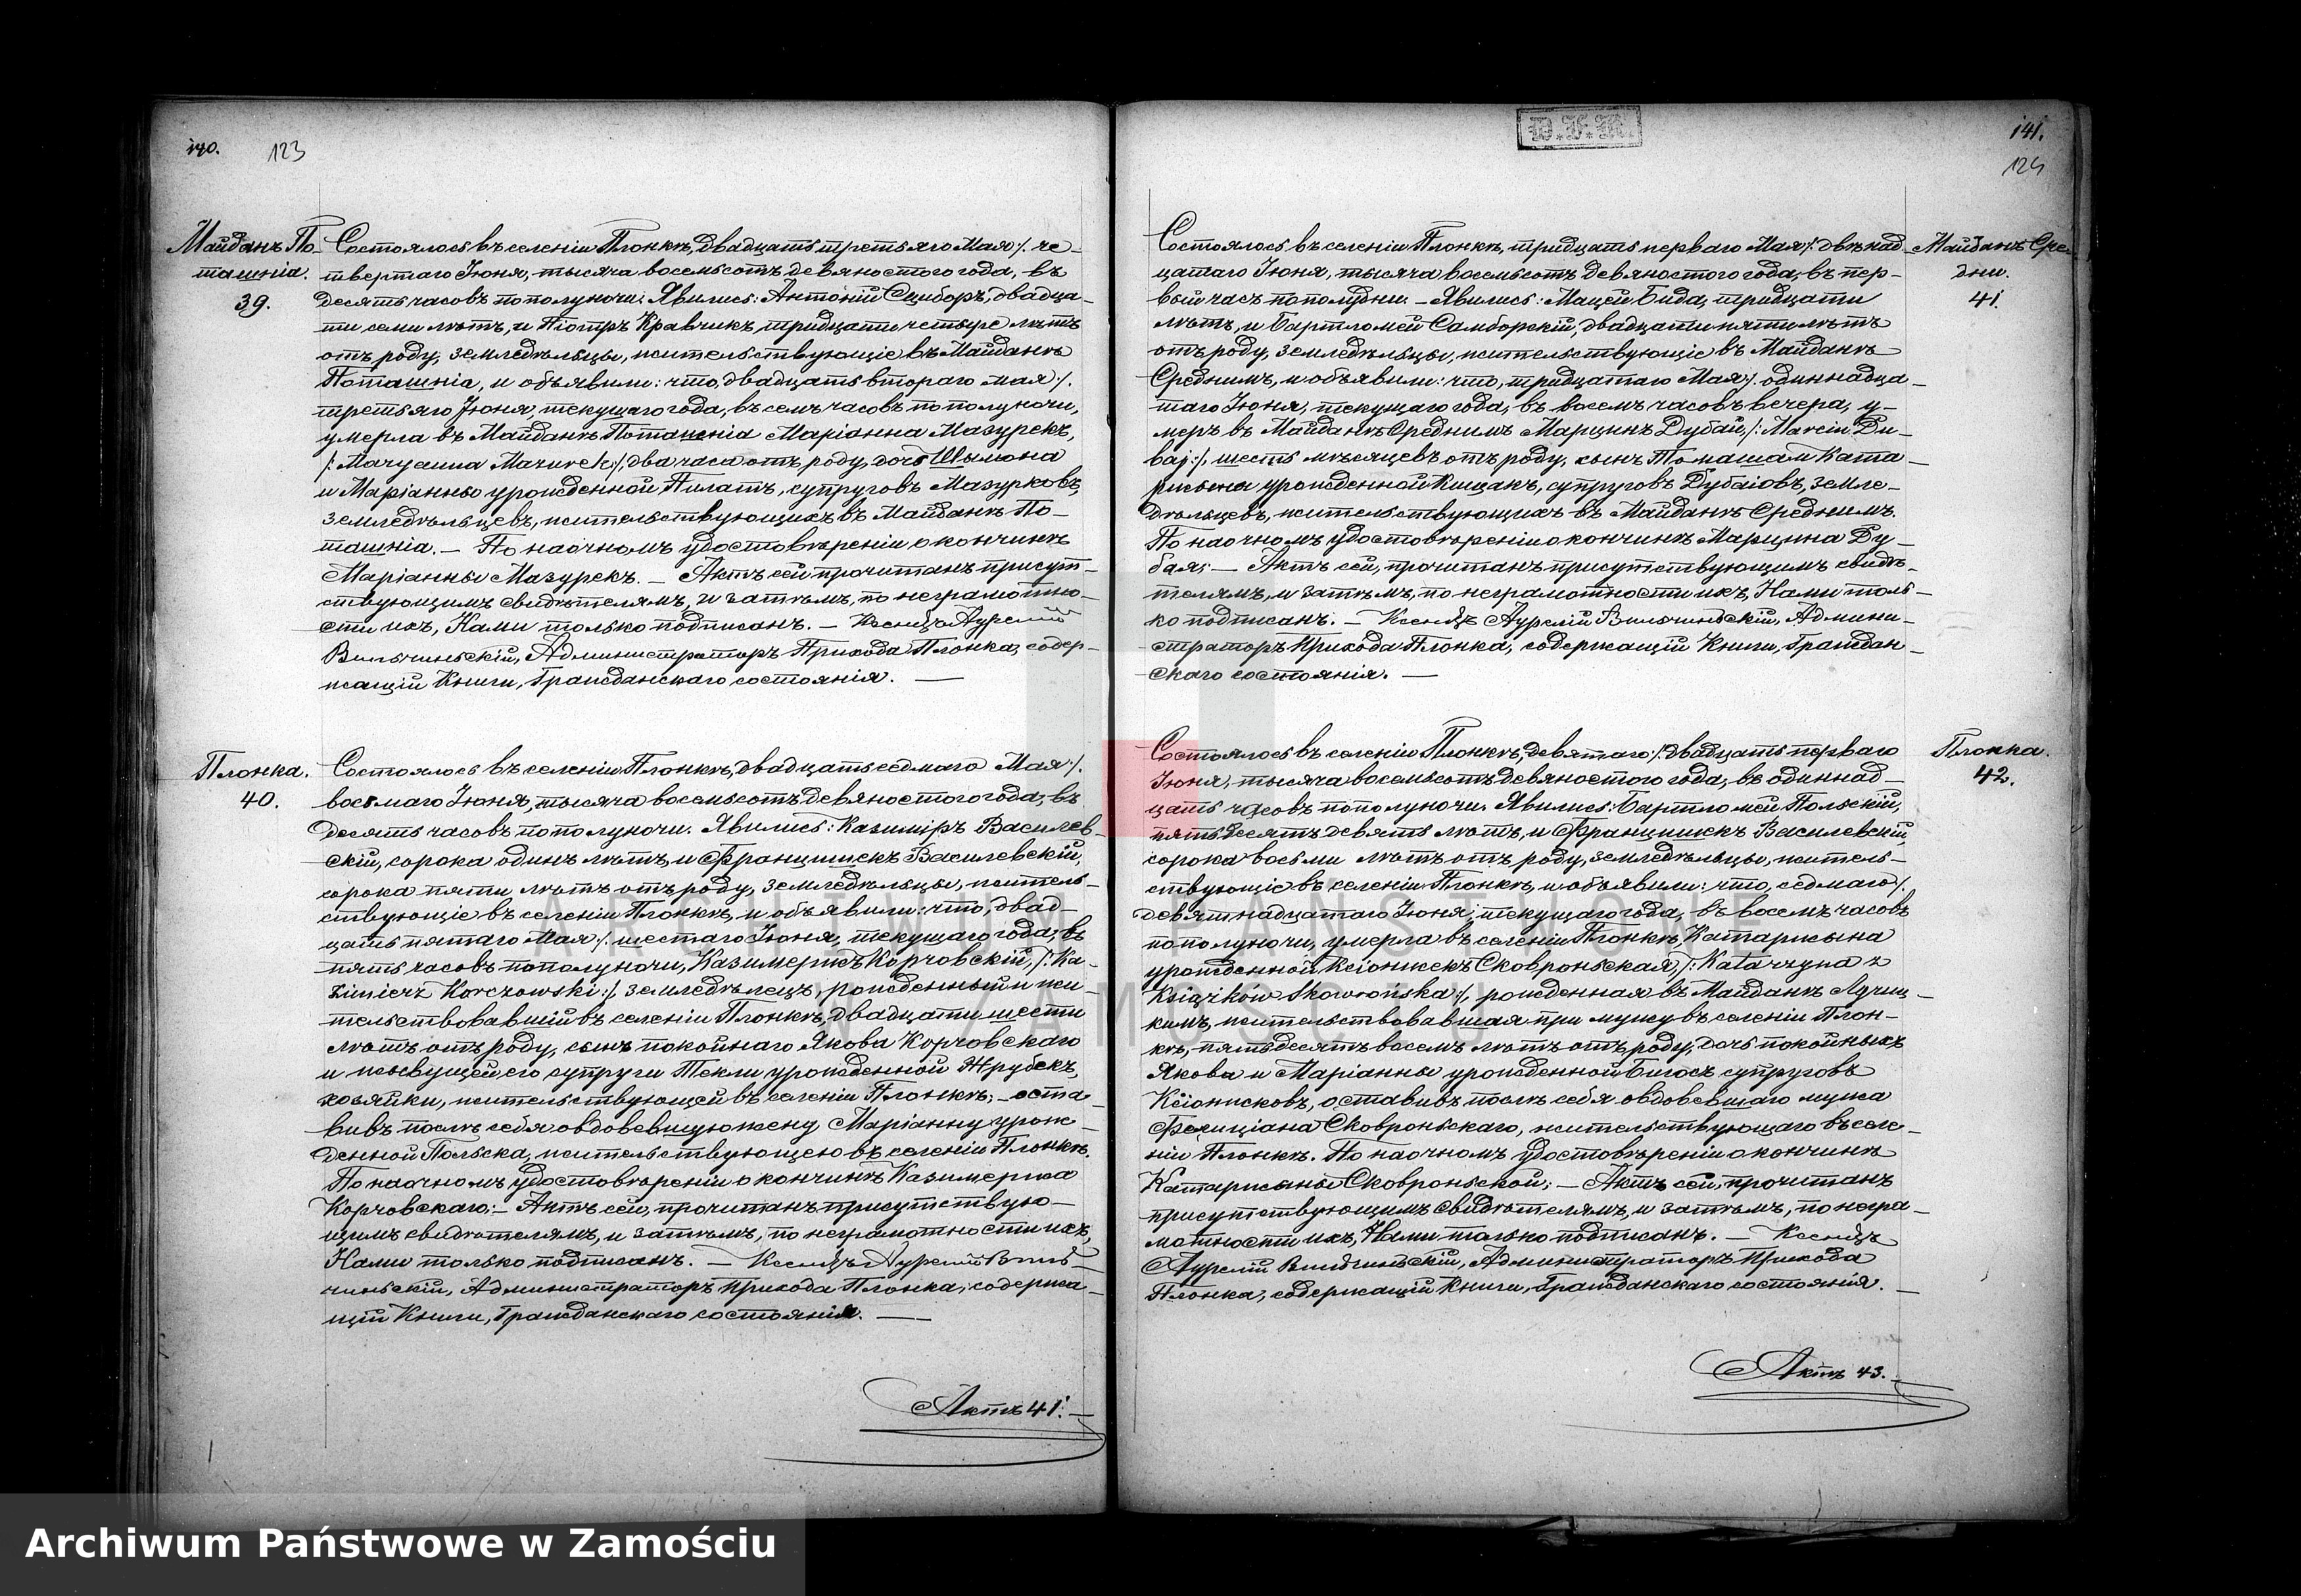 140. 123
Майданъ По-
ташнiа.
39.
Состоялось въ селенiи Плонкѣ, двадцать третьяго Мая /. че-
твертаго Iюня, тысяча восемьсотъ девяностого года, въ
десять часовъ пополуночи. Явились: Антонiй Сциборъ, двадца-
ти семи лѣтъ, и Пiотръ Кравчикъ, тридцати четыре лѣтъ
отъ роду, земледѣльцы, жительствующiе въ Майданѣ
Поташнiа, и объявили: что, двадцать втораго мая /.
третьяго Iюня, текущаго года, въ семь часовъ пополуночи,
умерла въ Майданѣ Поташнiа Марiанна Мазурекъ,
/: Maryanna Mazurek :/, два часа отъ роду, дочь Шымона
и Марiанны урожденной Пилатъ, супруговъ Мазурковъ,
земледѣльцевъ, жительствующихъ въ Майданѣ По-
ташнiа. — По наочномъ удостовѣренiи о кончинѣ
Марiанны Мазурекъ. — Актъ сей прочитанъ присут-
ствующимъ свидѣтелямъ, и затѣмъ, по неграмотно-
сти ихъ, Нами только подписанъ. — Ксендзъ Аурелiй
Вильчиньскiй, Администраторъ Прихода Плонка, содер-
жащiй Книги, Гражданскаго состоянiя. —
Плонка.
40.
Состоялось въ селенiи Плонкѣ, двадцать седмаго Мая /.
восмаго Iюня, тысяча восемьсотъ девяностого года, въ
десять часовъ пополуночи. Явились: Казимiръ Василев-
скiй, сорока одинъ лѣтъ, и Францишекъ Василевскiй,
сорока пяти лѣтъ отъ роду, земледѣльцы, житель-
ствующiе въ селенiи Плонкѣ, и объявили: что, двад-
цать пятаго Мая /. шестаго Iюня, текущаго года, въ
пять часовъ пополуночи, Казимержъ Корчовскiй, /: Ka-
zimierz Korczowski :/, земледѣлецъ, рожденный и жи-
тельствовавшiй въ селенiи Плонкѣ, двадцати шести
лѣтъ отъ роду, сынъ покойнаго Якова Корчовскаго
и живущей, его супруги Текли урожденной Жрубекъ,
хозяйки, жительствующей въ селенiи Плонкѣ; — оста-
вивъ послѣ себя овдовевшую жену Марiанну урож-
денной Польска, жительствующею въ селенiи Плонкѣ.
По наочномъ удостовѣренiи о кончинѣ Казимержа
Корчовскаго; — Актъ сей, прочитанъ присутствую-
щимъ свидѣтелямъ, и затѣмъ, по неграмотности ихъ,
Нами только подписанъ. — Ксендзъ Аурелiй Виль-
чиньскiй, Администраторъ Прихода Плонка, содержа-
щiй Книги, Гражданскаго состоянiя. —
Актъ 41. —
141.
124
Майданъ Сре-
дни.
41.
Состоялось въ селенiи Плонкѣ, тридцать перваго Мая /. двѣнад-
цатаго Iюня, тысяча восемьсотъ девяностого года, въ пер-
вый часъ пополудни. — Явились: Мацей Бида, тридцати
лѣтъ, и Бартломей Самборскiй, двадцати пяти лѣтъ
отъ роду, земледѣльцы, жительствующiе въ Майданѣ
Среднимъ, и объявили: что, тридцатаго Мая /. одиннадца-
таго Iюня, текущаго года, въ восемь часовъ вечера, у-
меръ въ Майданѣ Среднимъ Марцинъ Дубай, /: Marcin Du-
baj :/, шесть мѣсяцевъ отъ роду, сынъ Томаша и Ката-
рисына урожденной Кищакъ, супруговъ Дубаiовъ, земле-
дѣльцевъ, жительствующихъ въ Майданѣ Среднимъ.
По наочномъ удостовѣренiи о кончинѣ Марцина Ду-
бая; — Актъ сей, прочитанъ присутствующимъ свидѣ-
телямъ, и затѣмъ, по неграмотности ихъ, Нами толь-
ко подписанъ. — Ксендзъ Аурелiй Вильчиньскiй, Админи-
страторъ Прихода Плонка, содержащiй Книги, Граждан-
скаго состоянiя. —
Плонка.
42.
Состоялось въ селенiи Плонкѣ, девятаго /. двадцать перваго
Iюня, тысяча восемьсотъ девяностого года, въ одиннад-
цать часовъ пополуночи. Явились: Бартломей Польскiй,
пятьдесятъ девять лѣтъ, и Францишекъ Василевскiй,
сорока восьми лѣтъ отъ роду, земледѣльцы, житель-
ствующiе въ селенiи Плонкѣ, и объявили: что, седмаго /.
девятнадцатаго Iюня, текущаго года, въ восемь часовъ
пополуночи, умерла въ селенiи Плонкѣ, Катаржына
урожденной Ксiонжекъ Сковроньская, /: Katarzyna z
Książków Skowrońska :/, рожденная въ Майданѣ Лучиц-
кимъ, жительствовавшая при мужу въ селенiи Плон-
кѣ, пятьдесятъ восемь лѣтъ отъ роду, дочь покойныхъ
Якова и Марiанны урожденной Бигосъ супруговъ
Ксiонжковъ, оставивъ послѣ себя овдовевшаго мужа
Фелицiана Сковроньскаго, жительствующаго въ селе-
нiи Плонкѣ. По наочномъ удостовѣренiи о кончинѣ
Катаржыны Сковроньской; — Актъ сей, прочитанъ
присутствующимъ свидѣтелямъ, и затѣмъ, по негра-
мотности ихъ, Нами только подписанъ. — Ксендзъ
Аурелiй Вильчиньскiй, Администраторъ Прихода
Плонка, содержащiй Книги, Гражданскаго состоянiя. —
Актъ 43. —
ARCHIWUM PAŃSTWOWE
W ZAMOŚCIU
Archiwum Państwowe w Zamościu